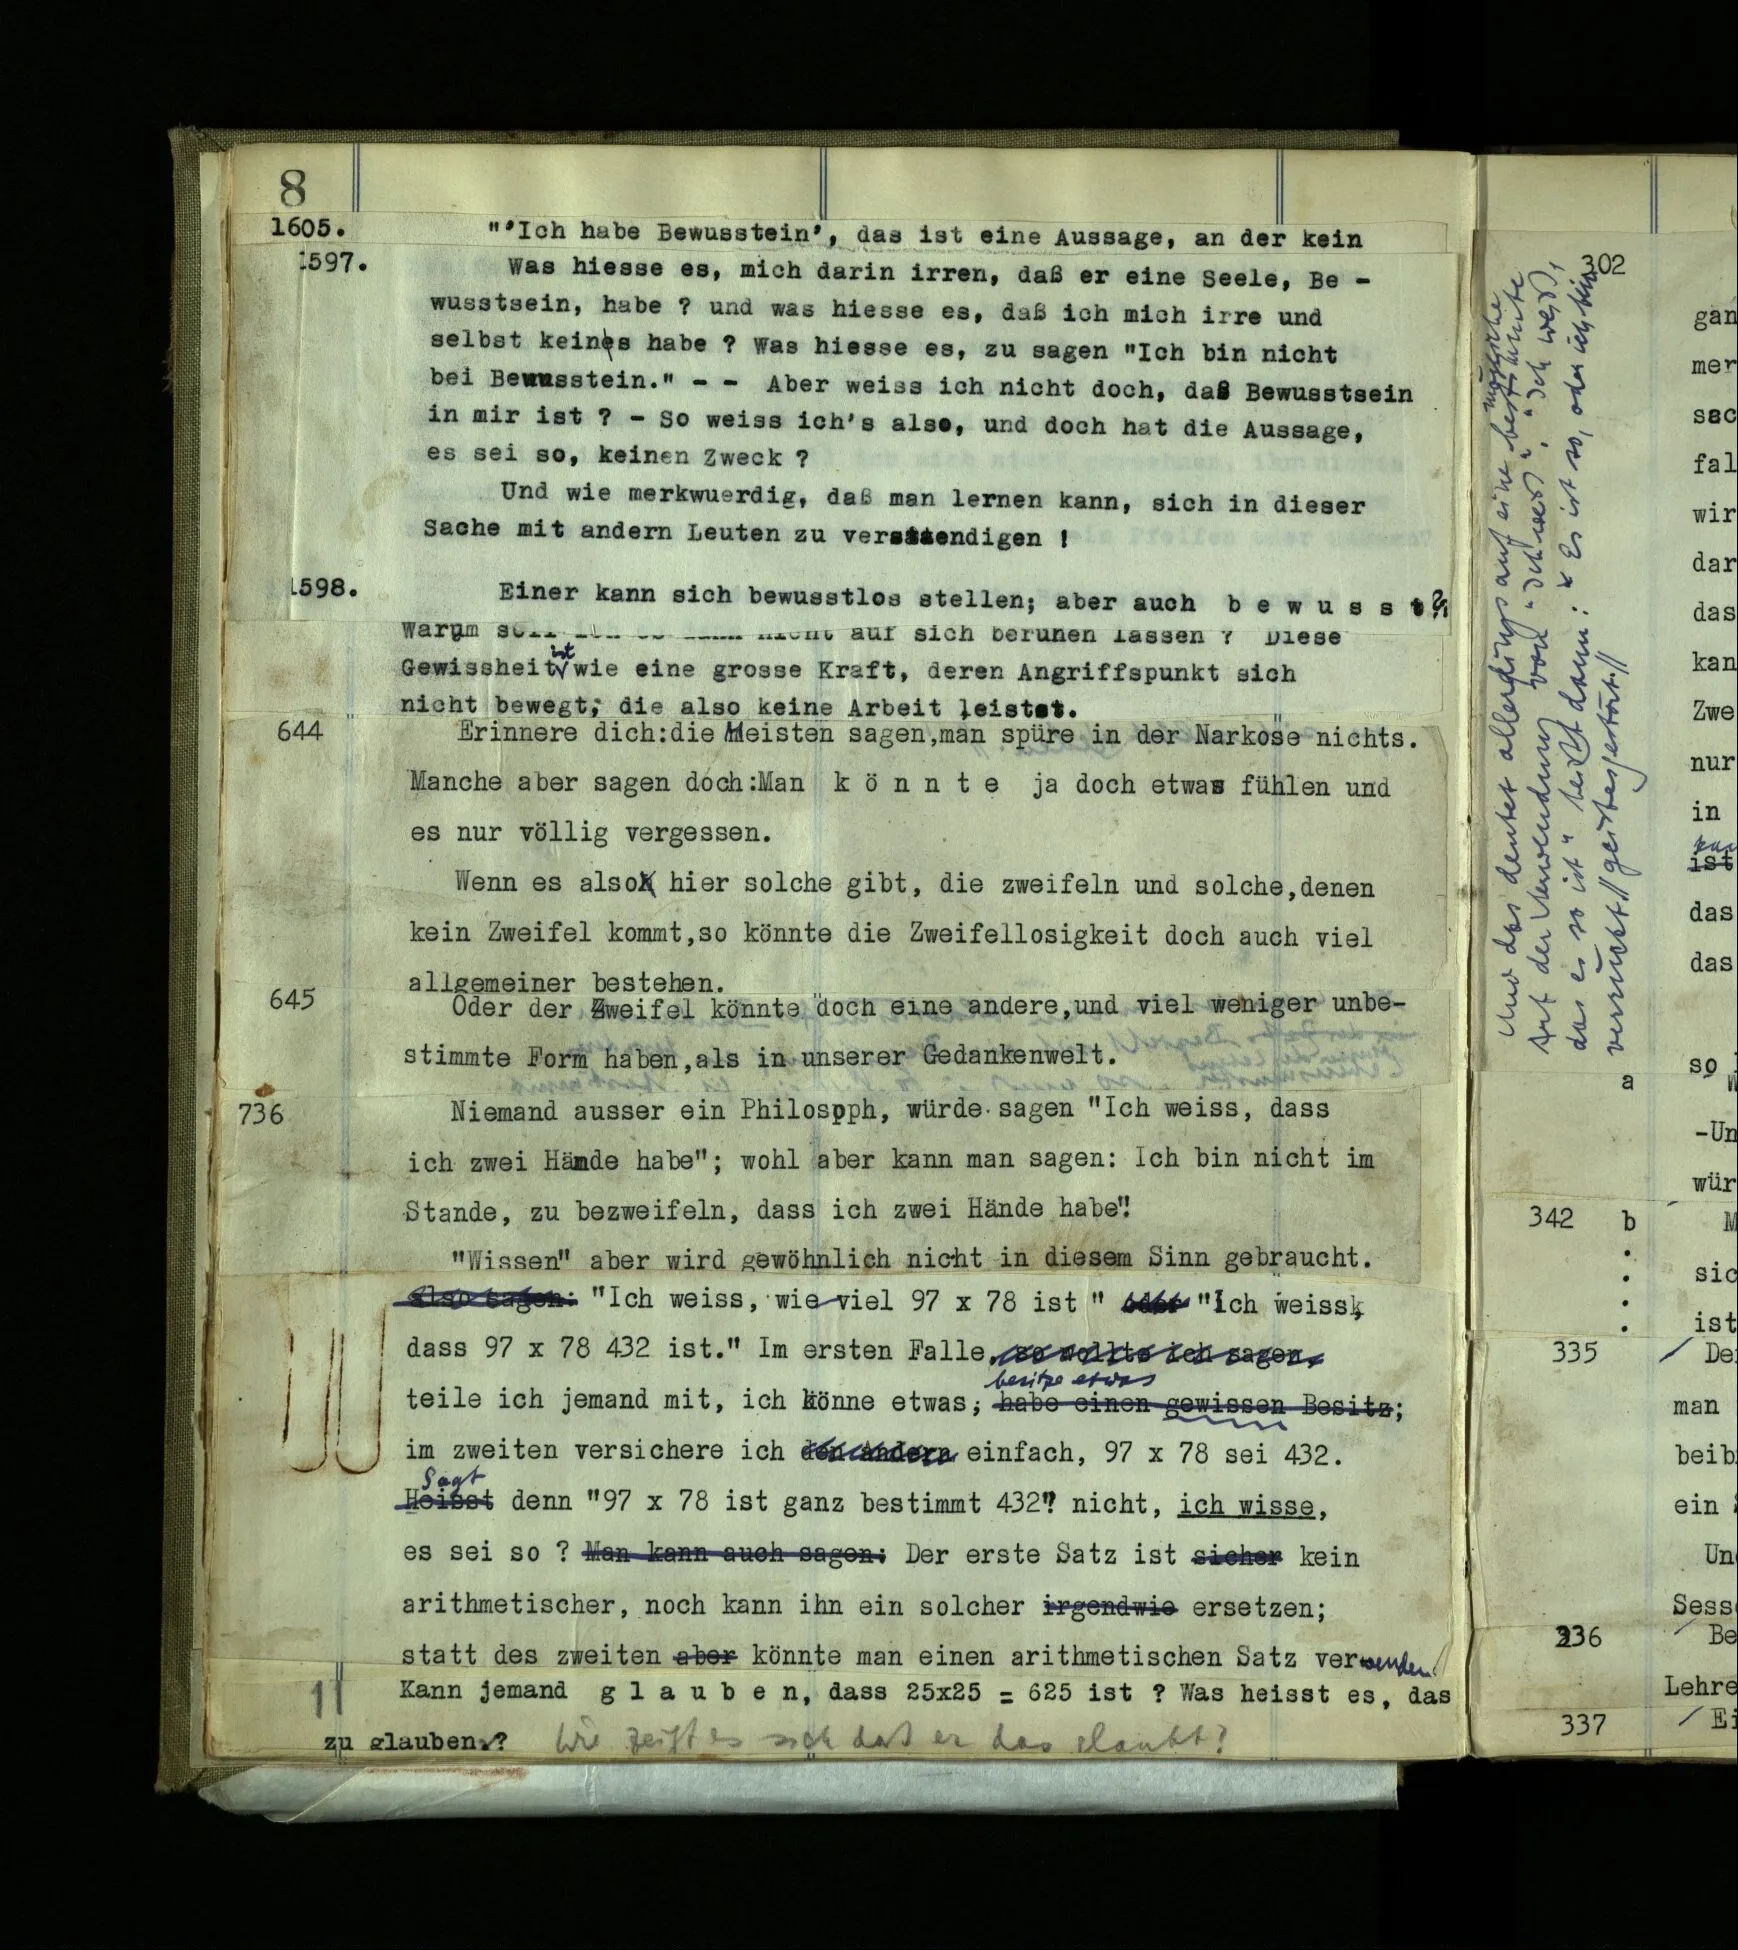 8
1605. "'Ich habe Bewusstein', das ist eine Aussage, an der kein
1597. Was hiesse es, mich darin irren, daß er eine Seele, Be -
wusstsein, habe ? und was hiesse es, daß ich mich irre und
selbst keines habe ? Was hiesse es, zu sagen "Ich bin nicht
bei Bewusstein." - - Aber weiss ich nicht doch, daß Bewusstsein
in mir ist ? - So weiss ich's also, und doch hat die Aussage,
es sei so, keinen Zweck ?
Und wie merkwuerdig, daß man lernen kann, sich in dieser
Sache mit andern Leuten zu verstaendigen !
1598. Einer kann sich bewusstlos stellen; aber auch b e w u s s t ?
Warum soll ich es dann nicht auf sich beruhen lassen ? Diese
Gewissheit ist wie eine grosse Kraft, deren Angriffspunkt sich
nicht bewegt; die also keine Arbeit leistet.
644 Erinnere dich:die Meisten sagen,man spüre in der Narkose nichts.
Manche aber sagen doch:Man k ö n n t e ja doch etwas fühlen und
es nur völlig vergessen.
Wenn es also hier solche gibt, die zweifeln und solche,denen
kein Zweifel kommt,so könnte die Zweifellosigkeit doch auch viel
allgemeiner bestehen.
645 Oder der Zweifel könnte doch eine andere,und viel weniger unbe-
stimmte Form haben,als in unserer Gedankenwelt.
736 Niemand ausser ein Philosoph, würde sagen "Ich weiss, dass
ich zwei Hände habe"; wohl aber kann man sagen: Ich bin nicht im
Stande, zu bezweifeln, dass ich zwei Hände habe".
"Wissen" aber wird gewöhnlich nicht in diesem Sinn gebraucht.
also sagen: "Ich weiss, wie viel 97 x 78 ist " oder "Ich weiss,
dass 97 x 78 432 ist." Im ersten Falle, so wollte ich sagen,
besitze etwas
teile ich jemand mit, ich könne etwas, habe einen gewissen Besitz;
im zweiten versichere ich den Andern einfach, 97 x 78 sei 432.
Sagt
Heisst denn "97 x 78 ist ganz bestimmt 432" nicht, ich wisse,
es sei so ? Man kann auch sagen: Der erste Satz ist sicher kein
arithmetischer, noch kann ihn ein solcher irgendwie ersetzen;
statt des zweiten aber könnte man einen arithmetischen Satz verwenden.
11 Kann jemand g l a u b e n, dass 25x25 = 625 ist ? Was heisst es, das
zu glauben ? Wie zeigt es sich daß er das glaubt?
Und das deutet allerdings auf eine bestimmte mögliche
Art der Anwendung von "Ich weiß". "Ich weiß,
das es so ist" heißt dann: Es ist so, oder ich bin
verrückt//geistesgestört.//
302
gan
mer
sac
fal
wir
dar
das
kan
Zwe
nur
in
ist
das
das
so
a
-Un
wür
342 b M
sic
ist
335 De
man
beib
ein
Un
Sess
336 Be
Lehre
337 Ei